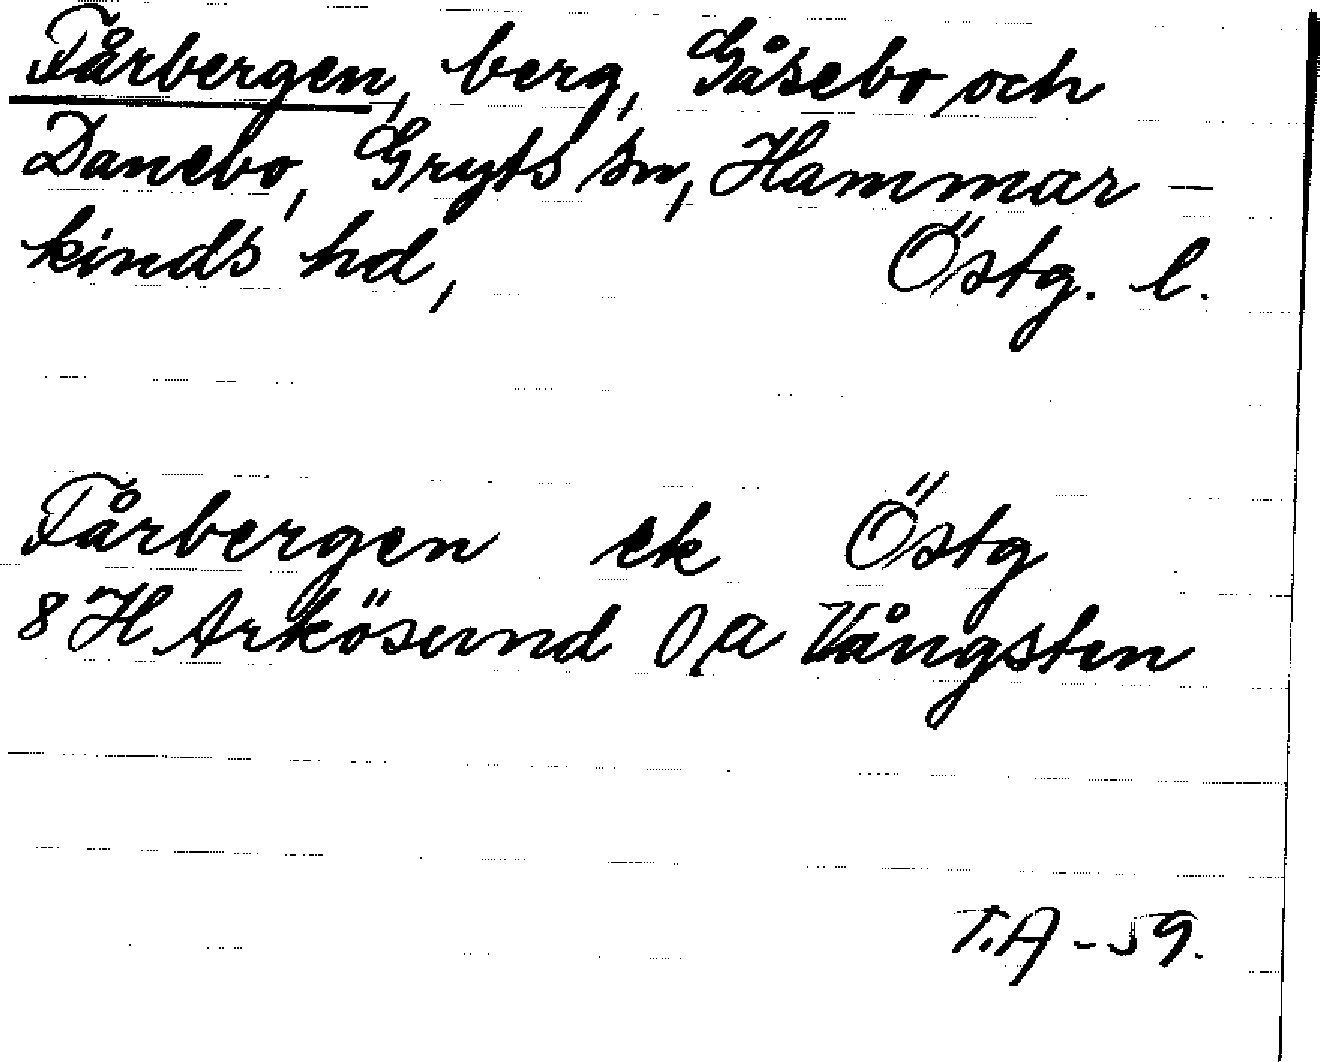 Fårbergen, berg, Gåsebo och
Danebo, Gryts sn, Hammar-
kinds hd, Östg. l.
Fårbergen ek Östg
8 H Arkösund Oa Vångsten
T.A-59.